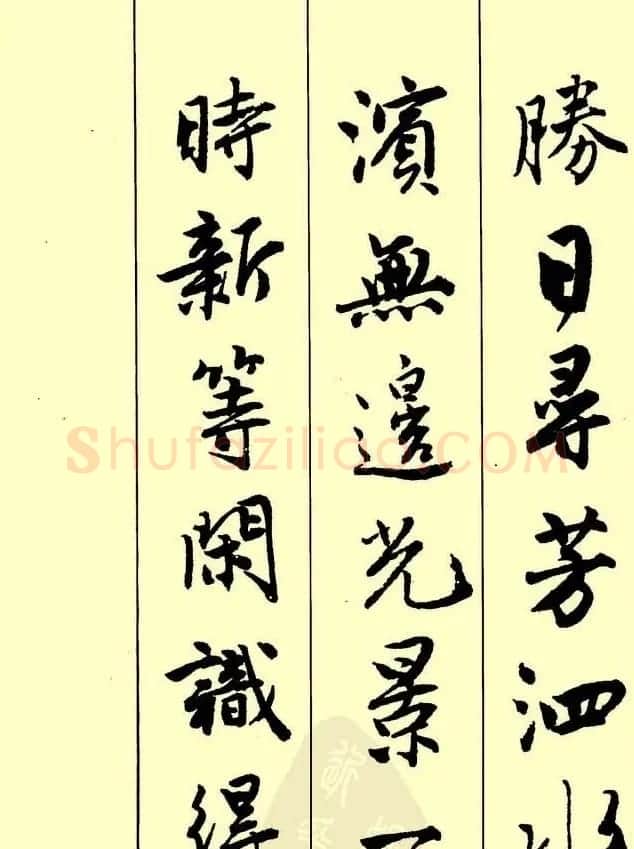 勝日尋芳泗水
濱無邊光景一
時新等閑識得
Shufaziliao.COM